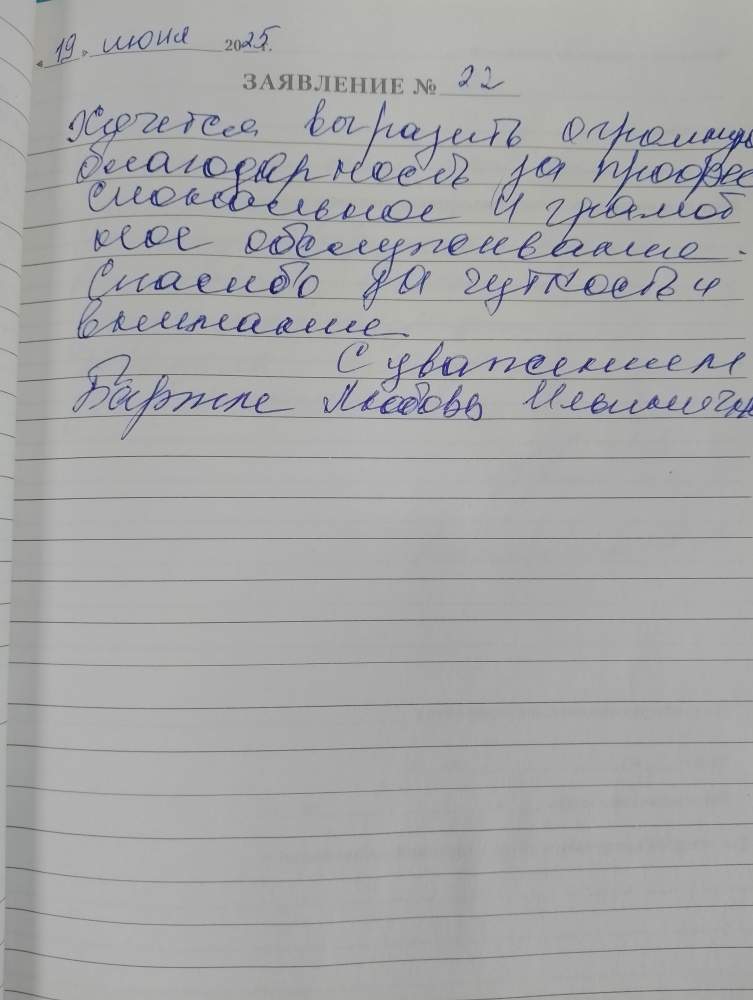 « 19 » июня 2025 г.
ЗАЯВЛЕНИЕ № 22
Хочется выразить огромную
благодарность за профес
сиональное и грамот
ное обслуживание.
Спасибо за чуткость и
внимание.
С уважением
Любовь Ильинична